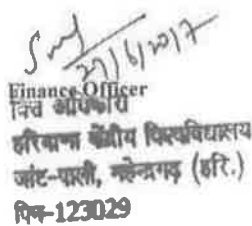 27/6/2017
Finance Officer
वित्त अधिकारी
हरियाणा केंद्रीय विश्वविद्यालय
जांट-पाली, महेन्द्रगढ़ (हरि.)
पिन-123029